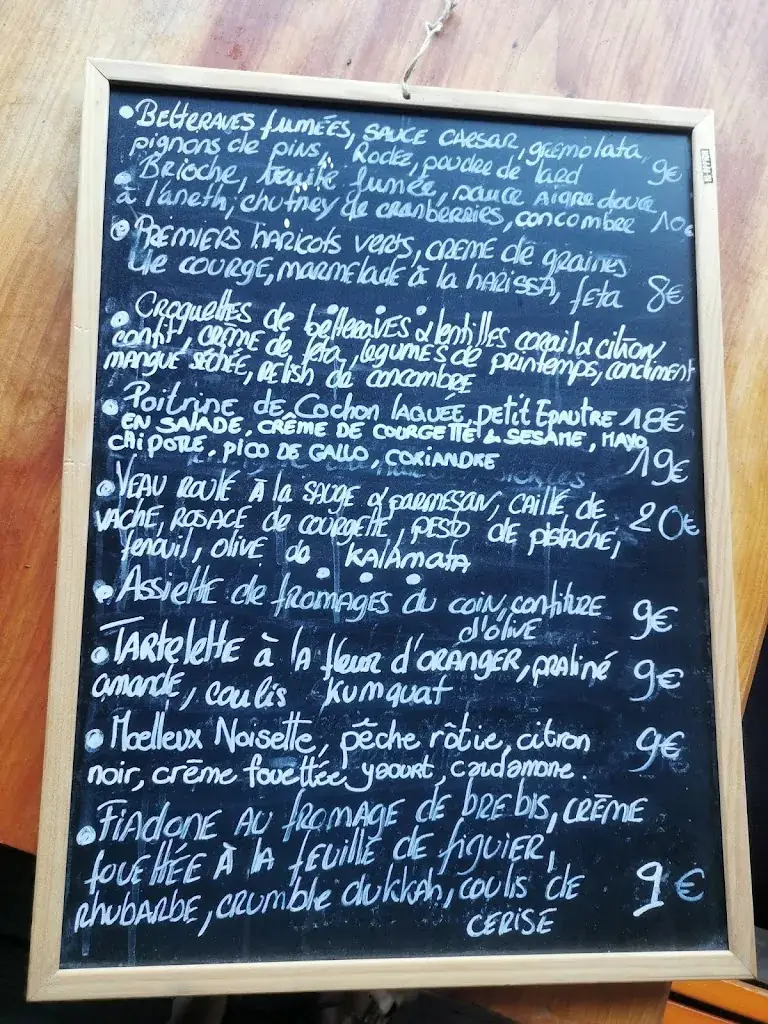 • Betteraves fumées, sauce caesar, gremolata,
pignons de pins, Rodez, poudre de lard 9€
• Brioche, truite fumée, sauce aigre douce
à l'aneth, chutney de cranberries, concombre 10€
• Premiers haricots verts, creme de graines
de courge, marmelade à la harissa, feta 8€
• Croquettes de betteraves & lentilles corail & citron
confit, crème de feta, légumes de printemps, condiment
mangue séchée, relish de concombre
• Poitrine de Cochon laquée, petit Epautre 18€
en salade, crème de courgette & sesame, mayo
chipotle, pico de gallo, coriandre 19€
• Veau roulé à la sauge & parmesan, caillé de
vache, rosace de courgette, pesto de pistache, 20€
fenouil, olive de Kalamata
• • •
• Assiette de fromages du coin, confiture 9€
d'olive
• Tartelette à la fleur d'oranger, praliné 9€
amande, coulis kumquat
• Moelleux Noisette, pêche rôtie, citron 9€
noir, crème fouettée yaourt, cardamone.
• Fiadone au fromage de brebis, crème
fouettée à la feuille de figuier,
rhubarbe, crumble dukkah, coulis de 9€
cerise